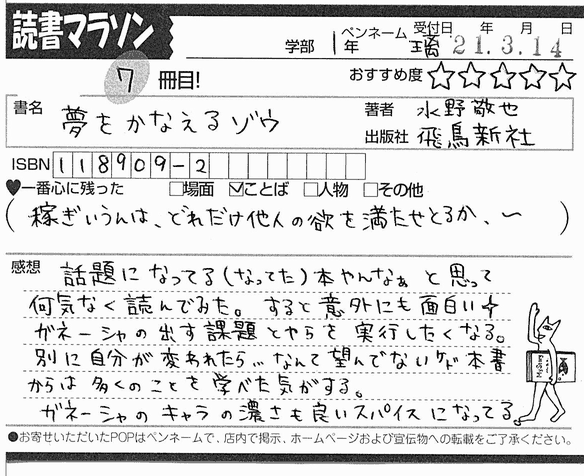 読書マラソン
学部 1年 ペンネーム 璃 受付日 年 月 日 21.3.14
7 冊目!
おすすめ度 ☆☆☆☆☆
書名 夢をかなえるゾウ
著者 水野敬也
出版社 飛鳥新社
ISBN 118909-2
♥一番心に残った □場面 ☑ことば □人物 □その他
(稼ぎいうんは、どれだけ他人の欲を満たせとるか、〜)
感想 話題になってる(なってた)本やんなぁ と思って
何気なく読んでみた。すると意外にも面白い+
ガネーシャの出す課題とやらを実行したくなる。
別に自分が変われたら…なんて望んでないケド本書
からは多くのことを学べた気がする。
ガネーシャのキャラの濃さも良いスパイスになってる。
●お寄せいただいたPOPはペンネームで、店内で掲示、ホームページおよび宣伝物への転載をご了承ください。